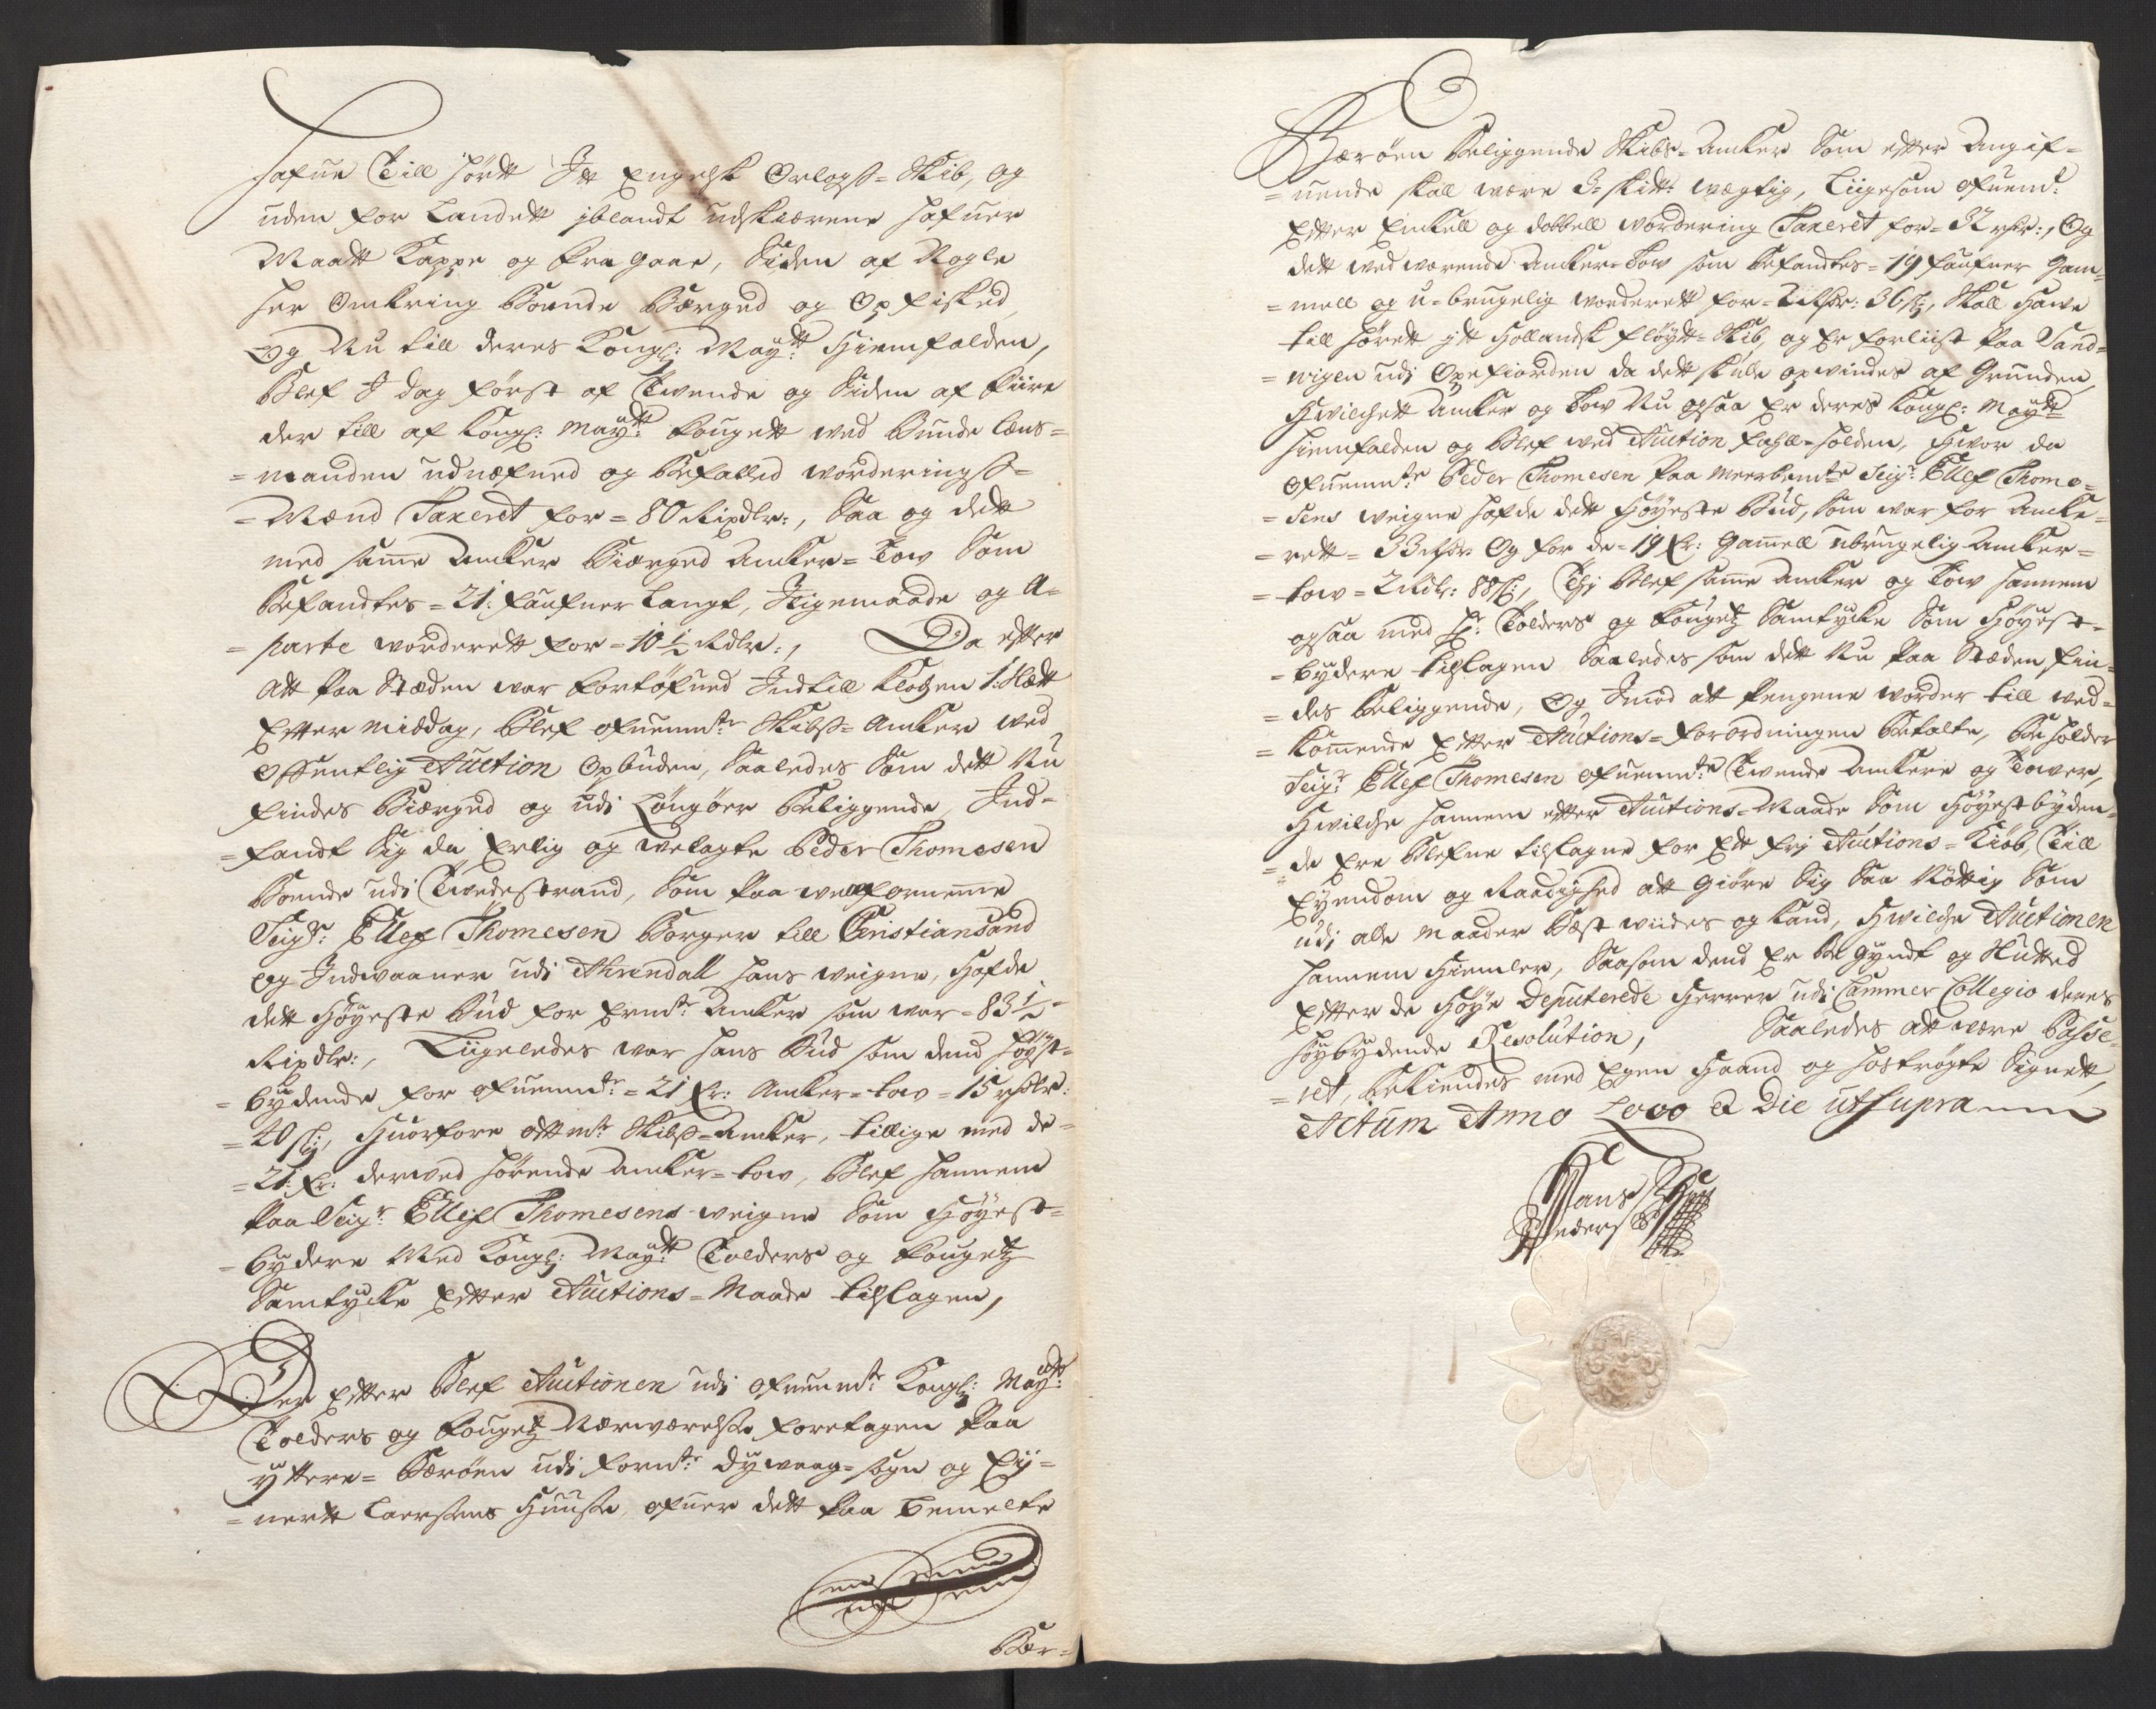 Hafue Till hørtt Itt Engelsk Orlogs=Skib, og
uden for Landett iblandt udskierene hafuer
Maatt Kappe og fra gaae, Siden af Nogle
her Omkring Boende Bærged og Opfisked
Og Nu till deres Kongl: Maytt: Hiemfalden,
Blef I dag først af Tvende og Siden af fiire
der till af Kongl: Maytt: fougett ved Bunde Læns=
=manden udnæfned og Befalled vorderings=
=Mænd Taxeret for=80 Rixdlr:, Saa og dett
med samme Ancker Biærged Ancker=Tow Som
Befandtes=21: faufner Langt, Iligemaade og A=
=parte vorderett for=10½ Rdlr:, Da efter
Att paa Stæden war fortøfued Indtill Klochen 1: Slætt
Efter middag, Blef ofuenmte Skibs=Ancker ved
Offentlig Auction Opbuden, Saaledes Som dett Nu
findes Biærged og udi Løngøer Beliggende, Ind=
=fandt Sig da Erlig og velagte Peder Thomesen
Boende udi Tvedestrand, Som paa welfornemme
Seigr: Ellef Thomesen Borger till Christiansand
og Indvaaner udi Ahrendall hans veigne, Hafde
dett Høyeste Bud for Ermte Ancker som war=83½=
Rixdlr:, Liigeledes war hans Bud som dend høyst=
=bydende for ofuenmte:=21 fr: Ancker=tow=15 rixdlr:
=20 sk:, Huorfore attmte Skibs=Ancker, tillige med de=
=21: fr: derved hørende Ancker=tow, Blef hannem
paa Seigr: Ellef Thomesens veigne Som Høyest=
=bydere Med Kongl: Maytt: Tolders og fougetz
Samtycke Efter Auctions=Maade tilslagen,
Der Efter Blef Auctionen udi ofuenmte: Kongl: Maytts:
Tolders og fougetz Nærværelse foretagen paa
yttere=Børøen udi formte: Dywaag=sogn og Ey=
=nertt Laersens Huuse, ofuer dett paa bemelte
Bør=
Børøen Beliggende Skibs=Ancker Som efter Angif=
=uende skall være 3=skitt: vægtig, Liigesom ofuemt:
Efter Enckell og dobbell vordering Taxeret for=32 rdr:, Og
dett ved værende Ancker=Tow som Befandtes=19 faufner Gam=
=mell og u=brugelig vorderett for=2 Rdr: 36 sk:, Skall Hawe
till hørett itt Hollandsk Fløytt=Skib, og Er forliist paa Sand=
=vigen udi Oxefiorden da dett skule opvindes af Grunden,
Hwilchett Ancker og Tow Nu ogsaa Er deres Kongl: Maytt:
hiemfalden og Blef ved Auction fahll=holden, Hvor da
Ofuenmte Peder Thomesen paa meerbemte Seigr: Ellef Thome=
=sens veigne hafde dett Høyeste Bud, Som war for Ancke=
=rett=33 Rdr Og for de=19 fr: Gamell ubrugelig Ancker=
=tow=2 Rdlr: 88 sk:, Thi Blef samme Ancker og Tow hannem
ogsaa med Hr: Tolders og fougetz Samtycke Som Høyest=
=bydere tilslagen Saaledes som dett Nu paa Stæden fin=
=des Beliggende, Og Imod att Pengene vorder till ved=
=kommende Efter Auctions=forordningen Betalte, Beholder
Seigr: Ellef Thomesen ofuenmte Tvende Anckere og Tower,
Hvilche hannem efter Auctions=Maade Som Høyestbyden=
=de Ere Blefne tilslagne for Ett frj Auctions=Kiøb, Till
Eyendom og Raadighed att Giøre Sig Saa Nøttig Som
udi alle maader Best viides og kand, Hvilche Auctionen
hannem Hiemler, Saasom dend Er Begyndt og Sluttet
Efter de Høye Deputerede Herrer udi Cammer Collegio deres
høybydende Resolution, Saaledes att være Passe=
=ret, bekiendes med Egen Haand og hostrøgte Signett,
Actum Anno Loco & Die ut supra
Hans
Pedersen